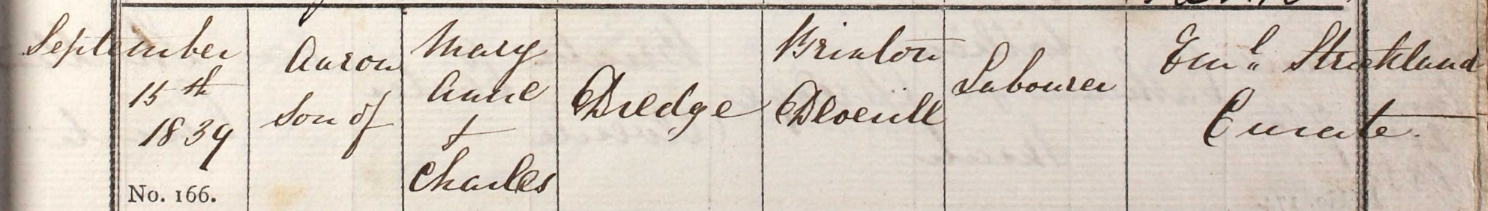 September
15th
1839
No. 166.
Aaron
Son of
Mary
Anne
+
Charles
Dredge
Brixton
Deverill
Labourer
Eml. Strickland
Curate.